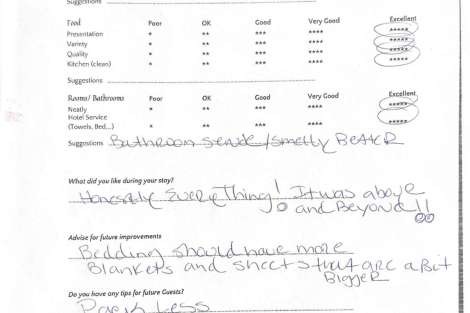 Suggestions
Food Poor OK Good Very Good Excellent
Presentation * ** *** **** *****
Variety * ** *** **** *****
Quality * ** *** **** *****
Kitchen (clean) * ** *** **** *****
Suggestions
Rooms/ Bathrooms Poor OK Good Very Good Excellent
Neatly * ** *** **** *****
Hotel Service
(Towels, Bed...) * ** *** **** *****
Suggestions Bathroom smelly
What did you like during your stay?
Honestly Everything! It was above
and Beyond!!
Advise for future improvements
Bedding should have more
Blankets and sheets that are a Bit
Bigger
Do you have any tips for future Guests?
Pack Less